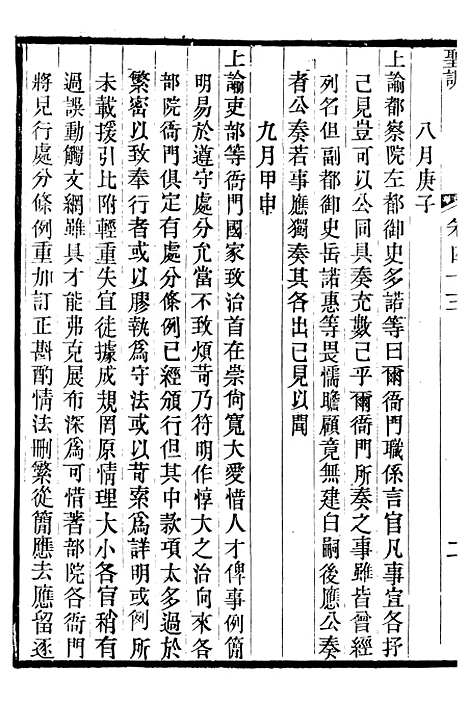 聖訓 卷四十三 二
八月庚子
上諭都察院左都御史多諾等曰爾衙門職係言官凡事宜各抒
己見豈可以公同具奏充數已乎爾衙門所奏之事雖皆曾經
列名但副都御史岳諾惠等畏懦瞻顧竟無建白嗣後應公奏
者公奏若事應獨奏其各出己見以聞
九月甲申
上諭吏部等衙門國家致治首在崇尙寬大愛惜人才俾事例簡
明易於遵守處分允當不致煩苛乃符明作惇大之治向來各
部院衙門俱定有處分條例已經頒行但其中款項太多過於
繁密以致奉行者或以膠執爲守法或以苛索爲詳明或例所
未載援引比附輕重失宜徒據成規罔原情理大小各官稍有
過誤動觸文網雖具才能弗克展布深爲可惜著部院各衙門
將見行處分條例重加訂正斟酌情法刪繁從簡應去應留逐